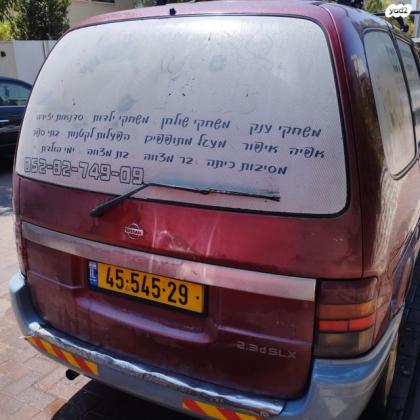 yad2
משחקי ענק משחקי שולחן משחקי ילדות סדנאות יצירה
אפיה איפור מעגל מתופפים הפעלות לקטנות בתי ספר
מסיבות כיתה בר מצווה בת מצווה ימי הולדת
052-82-749-09
NISSAN
IL
45-545-29
2.3d SLX